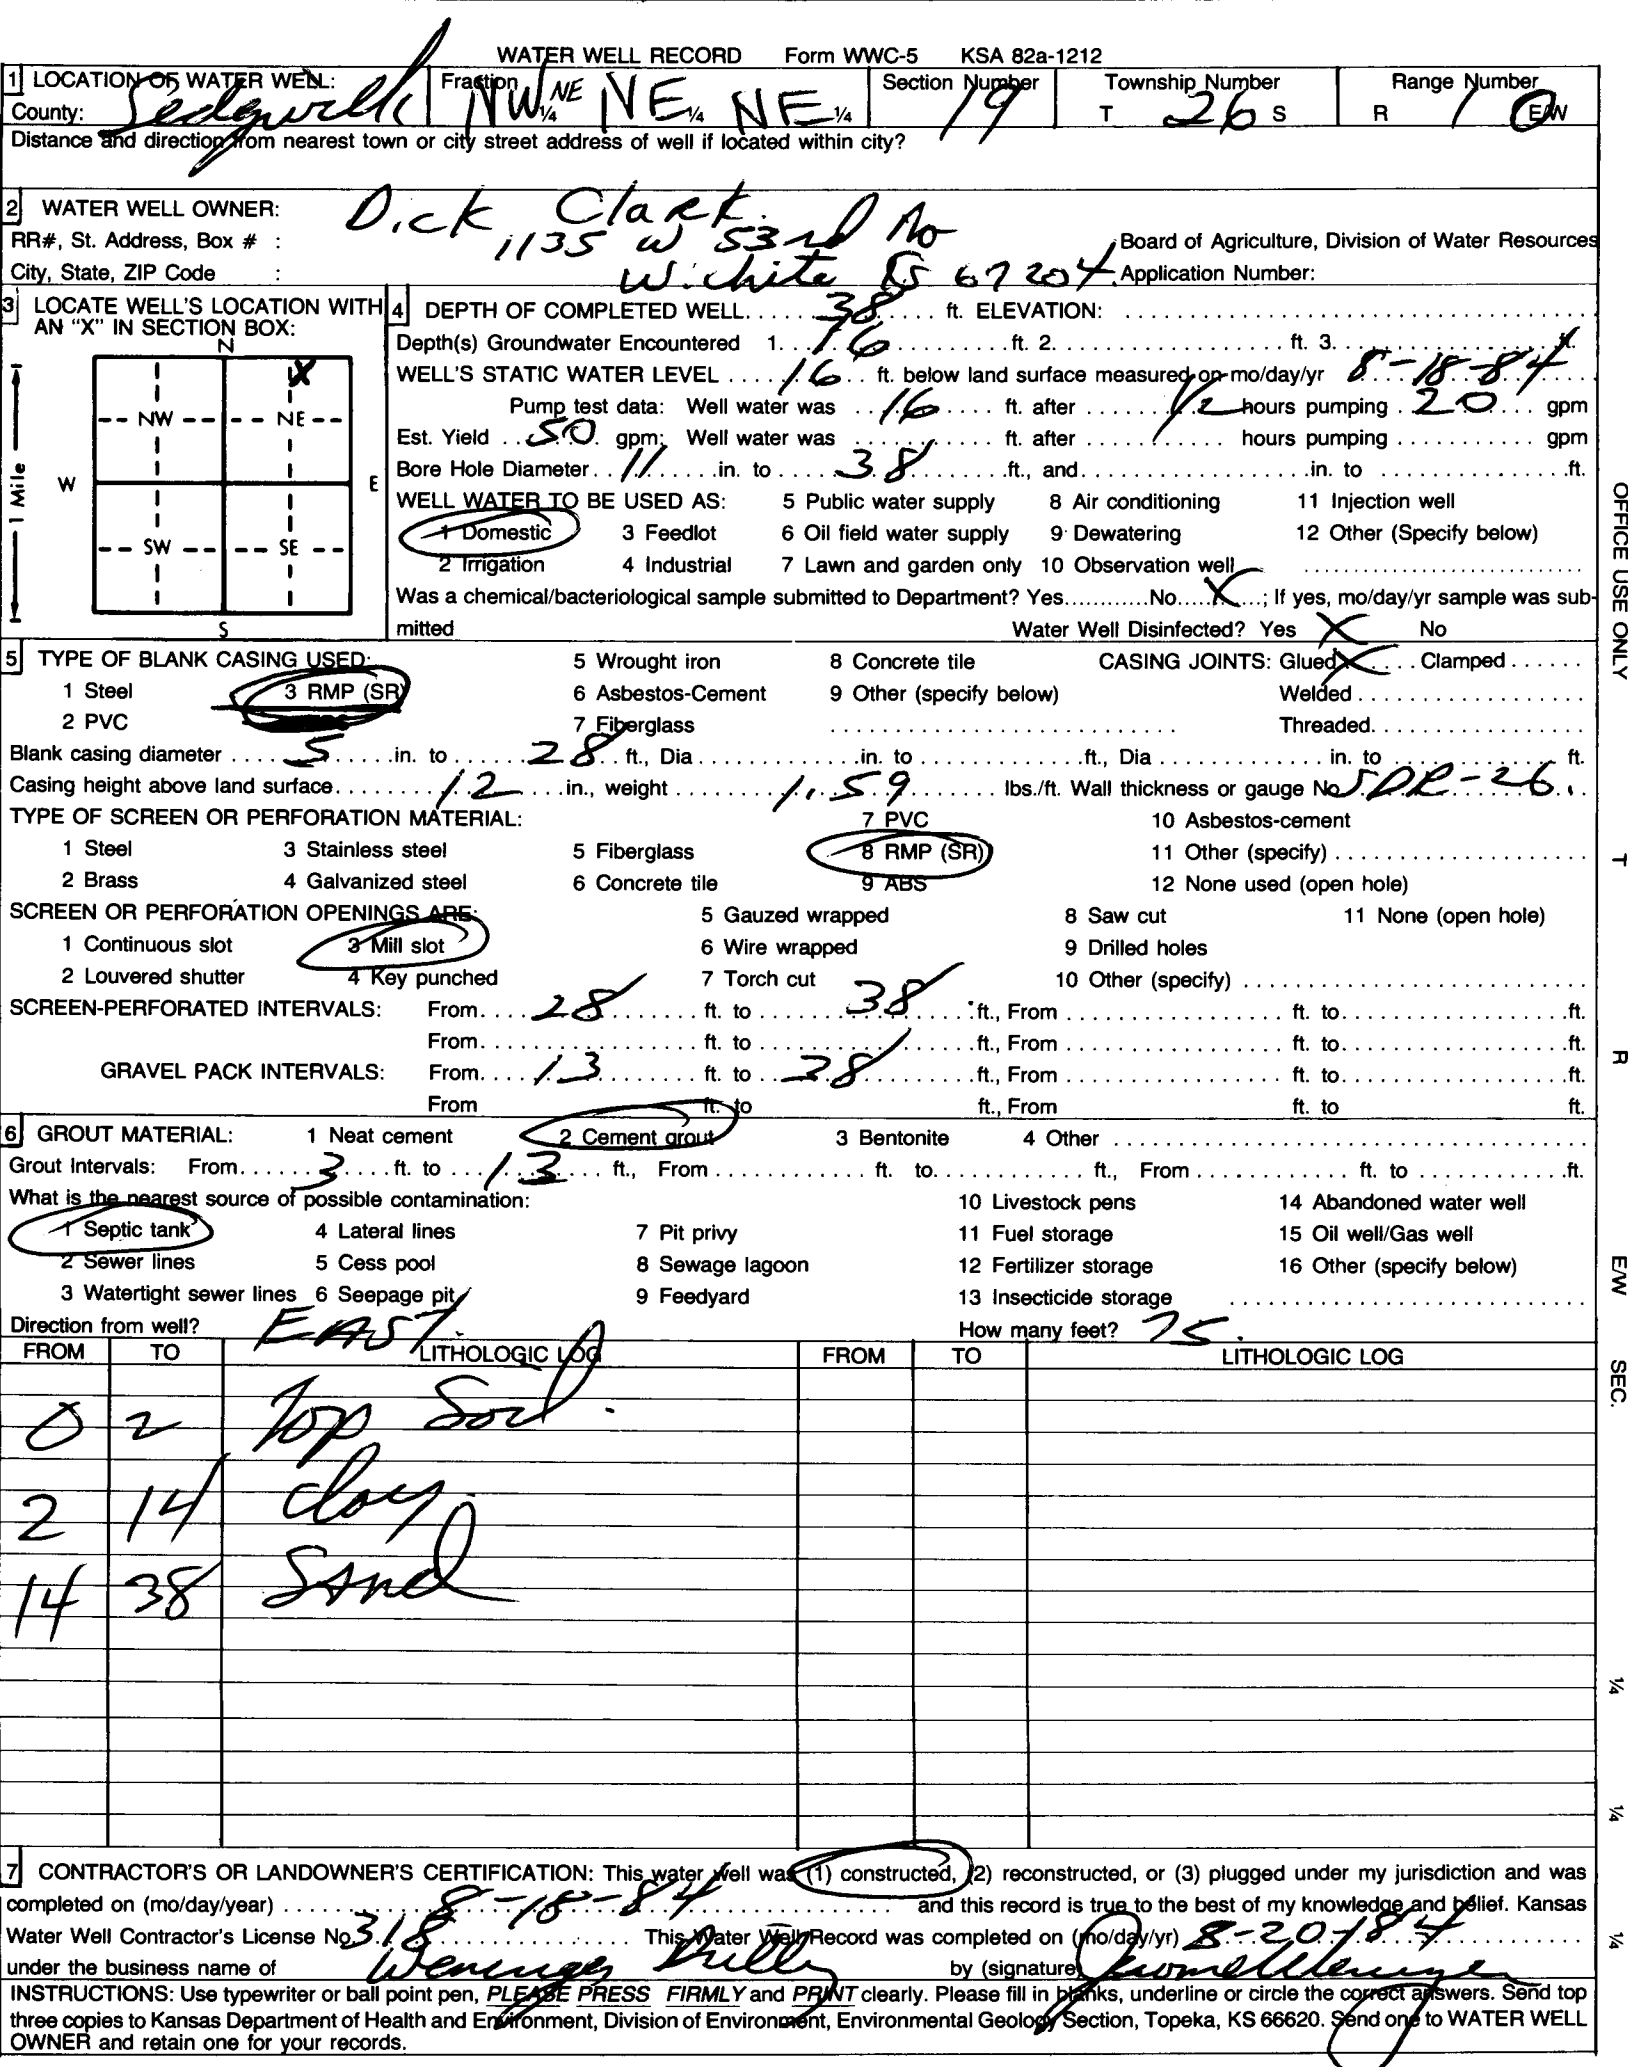 WATER WELL RECORD Form WWC-5 KSA 82a-1212
1 LOCATION OF WATER WELL: Fraction Section Number Township Number Range Number
County: Sedgwick NW ¼ NE NE ¼ NE ¼ 19 T 26 S R 1 E/W
Distance and direction from nearest town or city street address of well if located within city?
2 WATER WELL OWNER: Dick Clark.
RR#, St. Address, Box # : 1135 W 53rd No Board of Agriculture, Division of Water Resources
City, State, ZIP Code : Wichita Ks 67204 Application Number:
3 LOCATE WELL'S LOCATION WITH AN "X" IN SECTION BOX:
N
X
NW NE
W E
SW SE
S
1 Mile
4 DEPTH OF COMPLETED WELL 38 ft. ELEVATION:
Depth(s) Groundwater Encountered 1. 16 ft. 2. ft. 3. ft.
WELL'S STATIC WATER LEVEL 16 ft. below land surface measured on mo/day/yr 8-18-84
Pump test data: Well water was 16 ft. after 1/2 hours pumping 20 gpm
Est. Yield 50 gpm; Well water was ft. after hours pumping gpm
Bore Hole Diameter 11 in. to 38 ft., and in. to ft.
WELL WATER TO BE USED AS: 5 Public water supply 8 Air conditioning 11 Injection well
1 Domestic 3 Feedlot 6 Oil field water supply 9 Dewatering 12 Other (Specify below)
2 Irrigation 4 Industrial 7 Lawn and garden only 10 Observation well
Was a chemical/bacteriological sample submitted to Department? Yes No X ; If yes, mo/day/yr sample was sub-
mitted Water Well Disinfected? Yes X No
5 TYPE OF BLANK CASING USED: 5 Wrought iron 8 Concrete tile CASING JOINTS: Glued X Clamped
1 Steel 3 RMP (SR) 6 Asbestos-Cement 9 Other (specify below) Welded
2 PVC 7 Fiberglass Threaded
Blank casing diameter 5 in. to 28 ft., Dia in. to ft., Dia in. to ft.
Casing height above land surface 12 in., weight 1.59 lbs./ft. Wall thickness or gauge No SDR-26.
TYPE OF SCREEN OR PERFORATION MATERIAL: 7 PVC 10 Asbestos-cement
1 Steel 3 Stainless steel 5 Fiberglass 8 RMP (SR) 11 Other (specify)
2 Brass 4 Galvanized steel 6 Concrete tile 9 ABS 12 None used (open hole)
SCREEN OR PERFORATION OPENINGS ARE: 5 Gauzed wrapped 8 Saw cut 11 None (open hole)
1 Continuous slot 3 Mill slot 6 Wire wrapped 9 Drilled holes
2 Louvered shutter 4 Key punched 7 Torch cut 10 Other (specify)
SCREEN-PERFORATED INTERVALS: From 28 ft. to 38 ft., From ft. to ft.
From ft. to ft., From ft. to ft.
GRAVEL PACK INTERVALS: From 13 ft. to 38 ft., From ft. to ft.
From ft. to ft., From ft. to ft.
6 GROUT MATERIAL: 1 Neat cement 2 Cement grout 3 Bentonite 4 Other
Grout Intervals: From 3 ft. to 13 ft., From ft. to ft., From ft. to ft.
What is the nearest source of possible contamination: 10 Livestock pens 14 Abandoned water well
1 Septic tank 4 Lateral lines 7 Pit privy 11 Fuel storage 15 Oil well/Gas well
2 Sewer lines 5 Cess pool 8 Sewage lagoon 12 Fertilizer storage 16 Other (specify below)
3 Watertight sewer lines 6 Seepage pit 9 Feedyard 13 Insecticide storage
Direction from well? EAST. How many feet? 75.
FROM TO LITHOLOGIC LOG FROM TO LITHOLOGIC LOG
0 2 Top Soil.
2 14 Clay.
14 38 Sand
7 CONTRACTOR'S OR LANDOWNER'S CERTIFICATION: This water well was (1) constructed, (2) reconstructed, or (3) plugged under my jurisdiction and was
completed on (mo/day/year) 8-18-84 and this record is true to the best of my knowledge and belief. Kansas
Water Well Contractor's License No 318 This Water Well Record was completed on (mo/day/yr) 8-20-84
under the business name of Weninger Drilling by (signature) Jerome Weninger
INSTRUCTIONS: Use typewriter or ball point pen, PLEASE PRESS FIRMLY and PRINT clearly. Please fill in blanks, underline or circle the correct answers. Send top
three copies to Kansas Department of Health and Environment, Division of Environment, Environmental Geology Section, Topeka, KS 66620. Send one to WATER WELL
OWNER and retain one for your records.
OFFICE USE ONLY
T
R
E/W
SEC.
¼
¼
¼